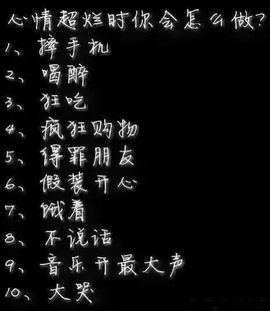 心情超烂时你会怎么做?
1、摔手机
2、喝醉
3、狂吃
4、疯狂购物
5、得罪朋友
6、假装开心
7、饿着
8、不说话
9、音乐开最大声
10、大哭